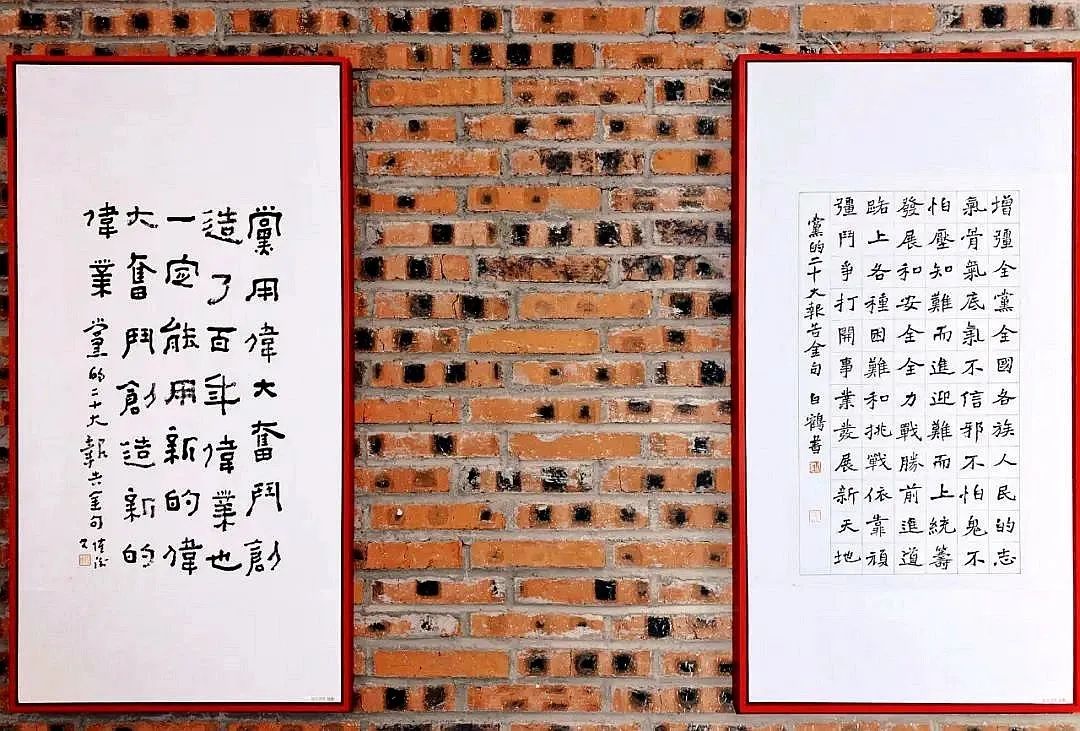 增彊全黨全國各族人民的志
氣骨氣底氣不信邪不怕鬼不
怕壓知難而進迎難而上統籌
發展和安全全力戰勝前進道
路上各種困難和挑戰依靠頑
彊鬥爭打開事業發展新天地
黨的二十大報告金句 白鶴書
黨用偉大奮鬥創
造了百年偉業也
一定能用新的偉
大奮鬥創造新的
偉業 黨的二十大報告金句